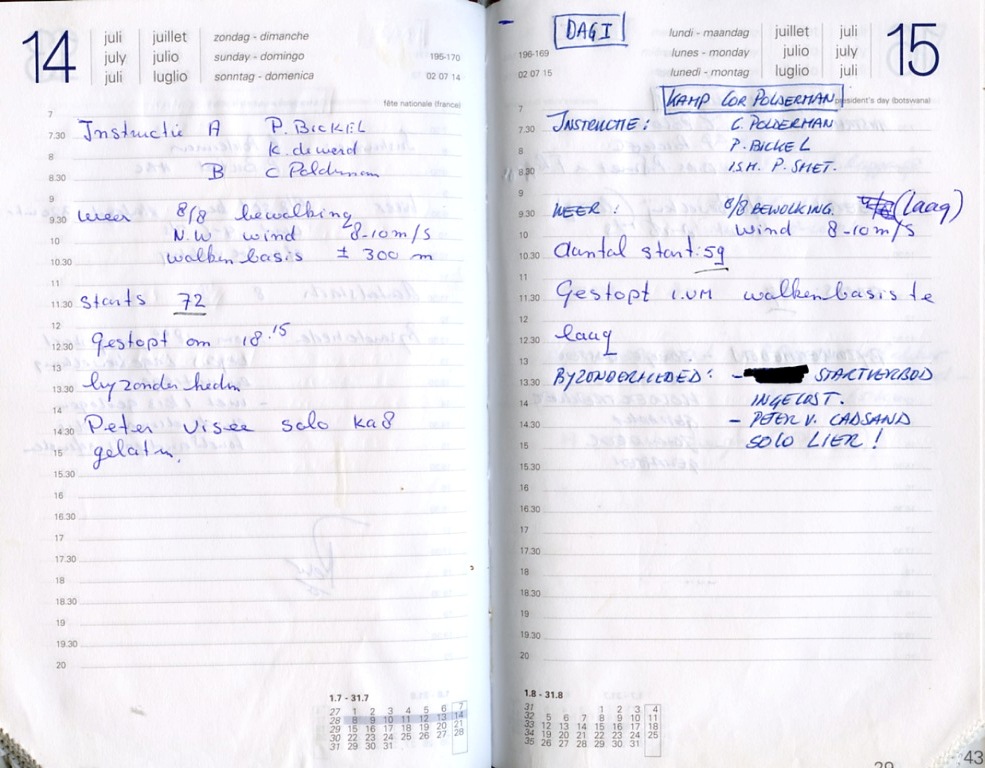 14
juli juillet zondag - dimanche
july julio sunday - domingo 195-170
juli luglio sonntag - domenica 02 07 14
fête nationale (france)
7
7.30 Instructie A P. BICKEL
8 K. de werd
8.30 B C Polderman
9
9.30 weer 8/8 bewalking
10 N.W wind 8-10 m/s
10.30 walken basis ± 300 m
11
11.30 starts 72
12
12.30 gestopt om 18.15
13
13.30 byzonderhedn
14
14.30 Peter Visée solo ka8
15 gelatn.
15.30
16
16.30
17
17.30
18
18.30
19
19.30
20
1.7 - 31.7
27 1 2 3 4 5 6 7
28 8 9 10 11 12 13 14
29 15 16 17 18 19 20 21
30 22 23 24 25 26 27 28
31 29 30 31
DAG I
lundi - maandag juillet juli 15
196-169 lunes - monday julio july
02 07 15 lunedi - montag luglio juli
KAMP COR POLDERMAN president's day (botswana)
7
7.30 INSTRUCTIE: C. POLDERMAN
8 P. BICKEL
8.30 I.S.M. P. SMET.
9
9.30 WEER: 8/8 BEWOLKING. (laag)
10 wind 8-10 m/s
10.30 Aantal start: 59
11
11.30 Gestopt I.VM walkenbasis te
12
12.30 laag
13
13.30 BYZONDERHEDED: - STARTVERBOD
14 INGELOST.
14.30 - PETER V. CADSAND
15 SOLO LIER!
15.30
16
16.30
17
17.30
18
18.30
19
19.30
20
1.8 - 31.8
31 1 2 3 4
32 5 6 7 8 9 10 11
33 12 13 14 15 16 17 18
34 19 20 21 22 23 24 25
35 26 27 28 29 30 31
43